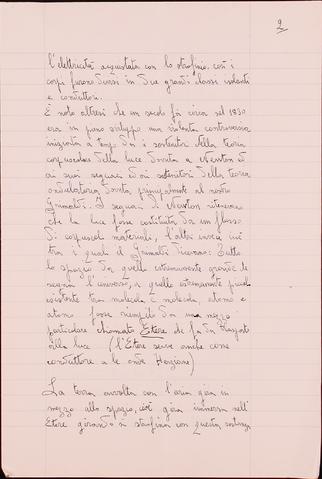 9
l'elettricità acquistata con lo strofinio, così i
corpi furono divisi in due grandi classi isolanti
e conduttori.
È noto altresì che un secolo fà circa nel 1830
era in pieno sviluppo una violenta controversia
iniziata a tempo da i sostenitori della teoria
corpuscolare della luce dovuta a Newton e
ai suoi seguaci e ai sostenitori della teoria
ondulatoria dovuta principalmente al nostro
Grimaldi. I seguaci di Newton ritenevano
che la luce fosse costituita da un flusso
di corpuscoli materiali, l'altri invece cioè
tra i quali il Grimaldi dicevano: Tutto
lo spazio da quello estremamente grande che
segna l'universo, a quello estremamente piccolo
esistente tra molecola e molecola, atomo e
atomo fosse riempito da un mezzo
particolare chiamato Etere che fa da trasporto
alla luce (l'Etere serve anche come
conduttore a le onde Herziane)
La terra avvolta con l'aria gira in
mezzo allo spazio, cioè gira immersa nell'
Etere girando si strofina con questa sostanza